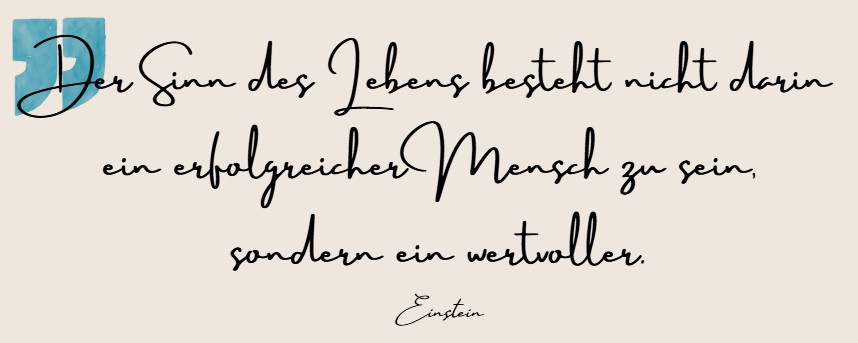 Der Sinn des Lebens besteht nicht darin
ein erfolgreicher Mensch zu sein,
sondern ein wertvoller.
Einstein